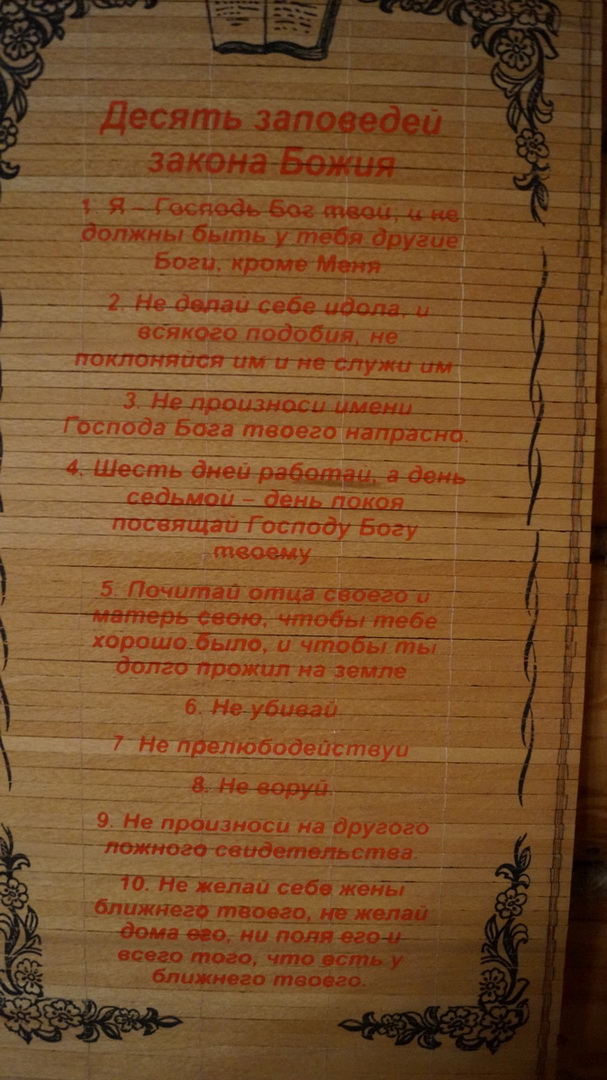 Десять заповедей
закона Божия
1. Я – Господь Бог твой, и не
должны быть у тебя другие
Боги, кроме Меня
2. Не делай себе идола, и
всякого подобия, не
поклоняйся им и не служи им
3. Не произноси имени
Господа Бога твоего напрасно.
4. Шесть дней работай, а день
седьмой – день покоя
посвящай Господу Богу
твоему
5. Почитай отца своего и
матерь свою, чтобы тебе
хорошо было, и чтобы ты
долго прожил на земле
6. Не убивай
7 Не прелюбодействуй
8. Не воруй.
9. Не произноси на другого
ложного свидетельства.
10. Не желай себе жены
ближнего твоего, не желай
дома его, ни поля его и
всего того, что есть у
ближнего твоего.